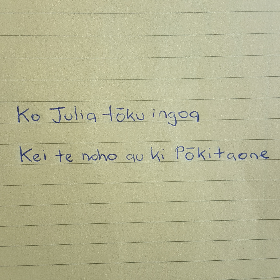 Ko Julia tōku ingoa
Kei te noho au ki Pōkitaone